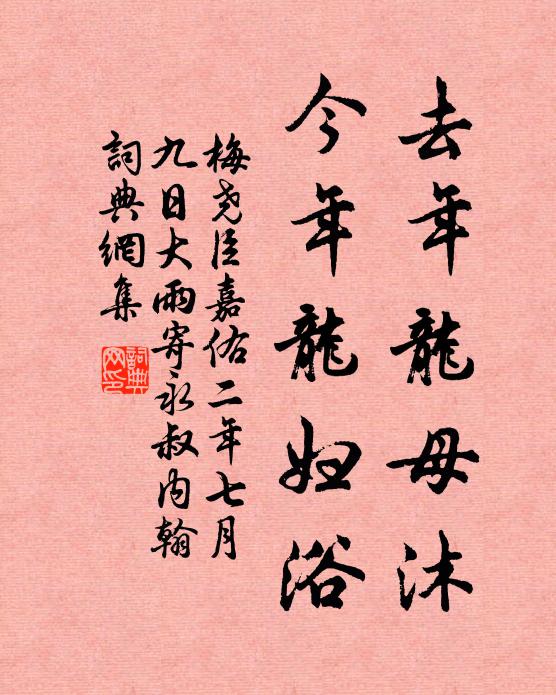 去年龍母沐
今年龍婦浴
梅堯臣嘉佑二年七月
九日大雨寄永叔内翰
詞典網集
詞典
网印